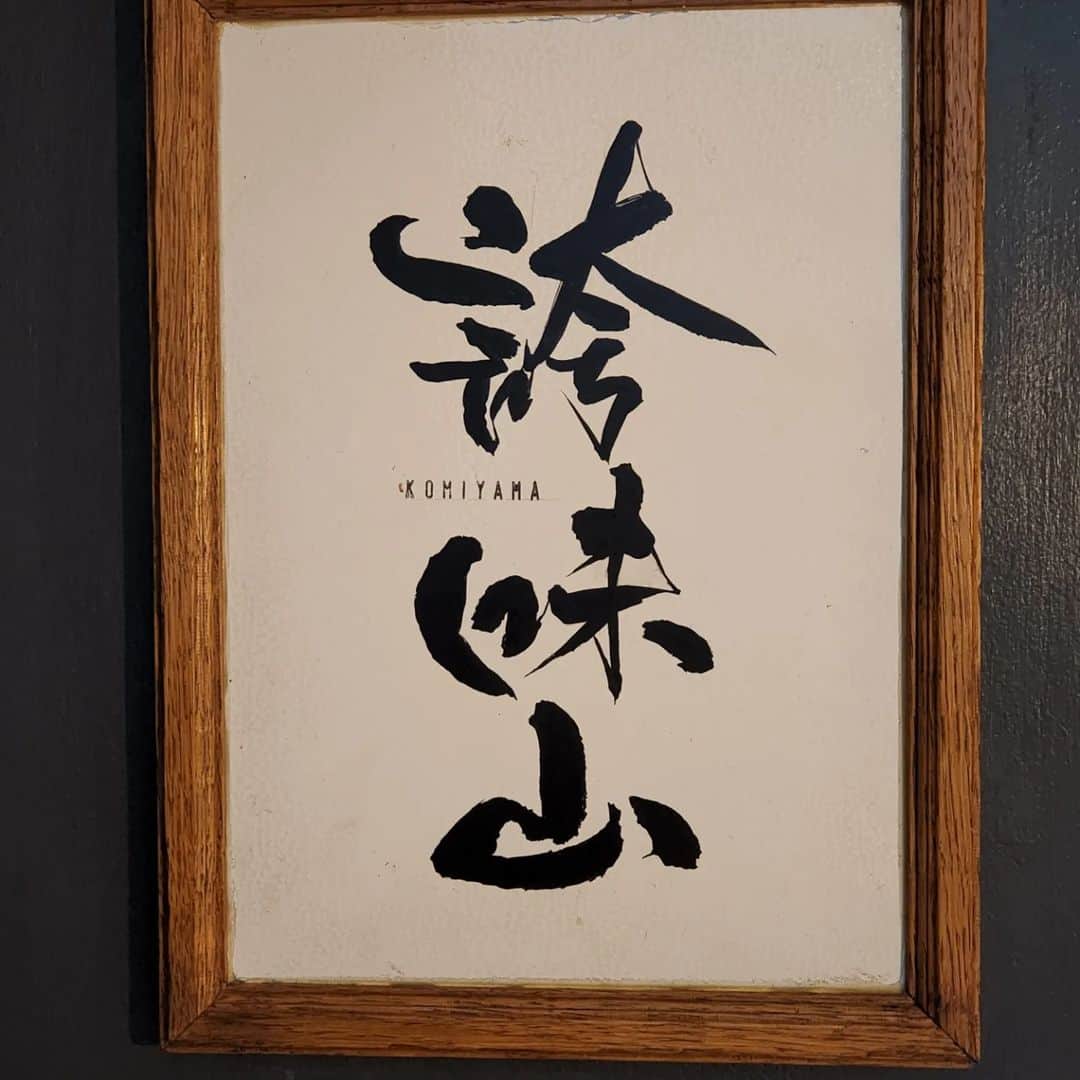 誇味山
KOMIYAMA